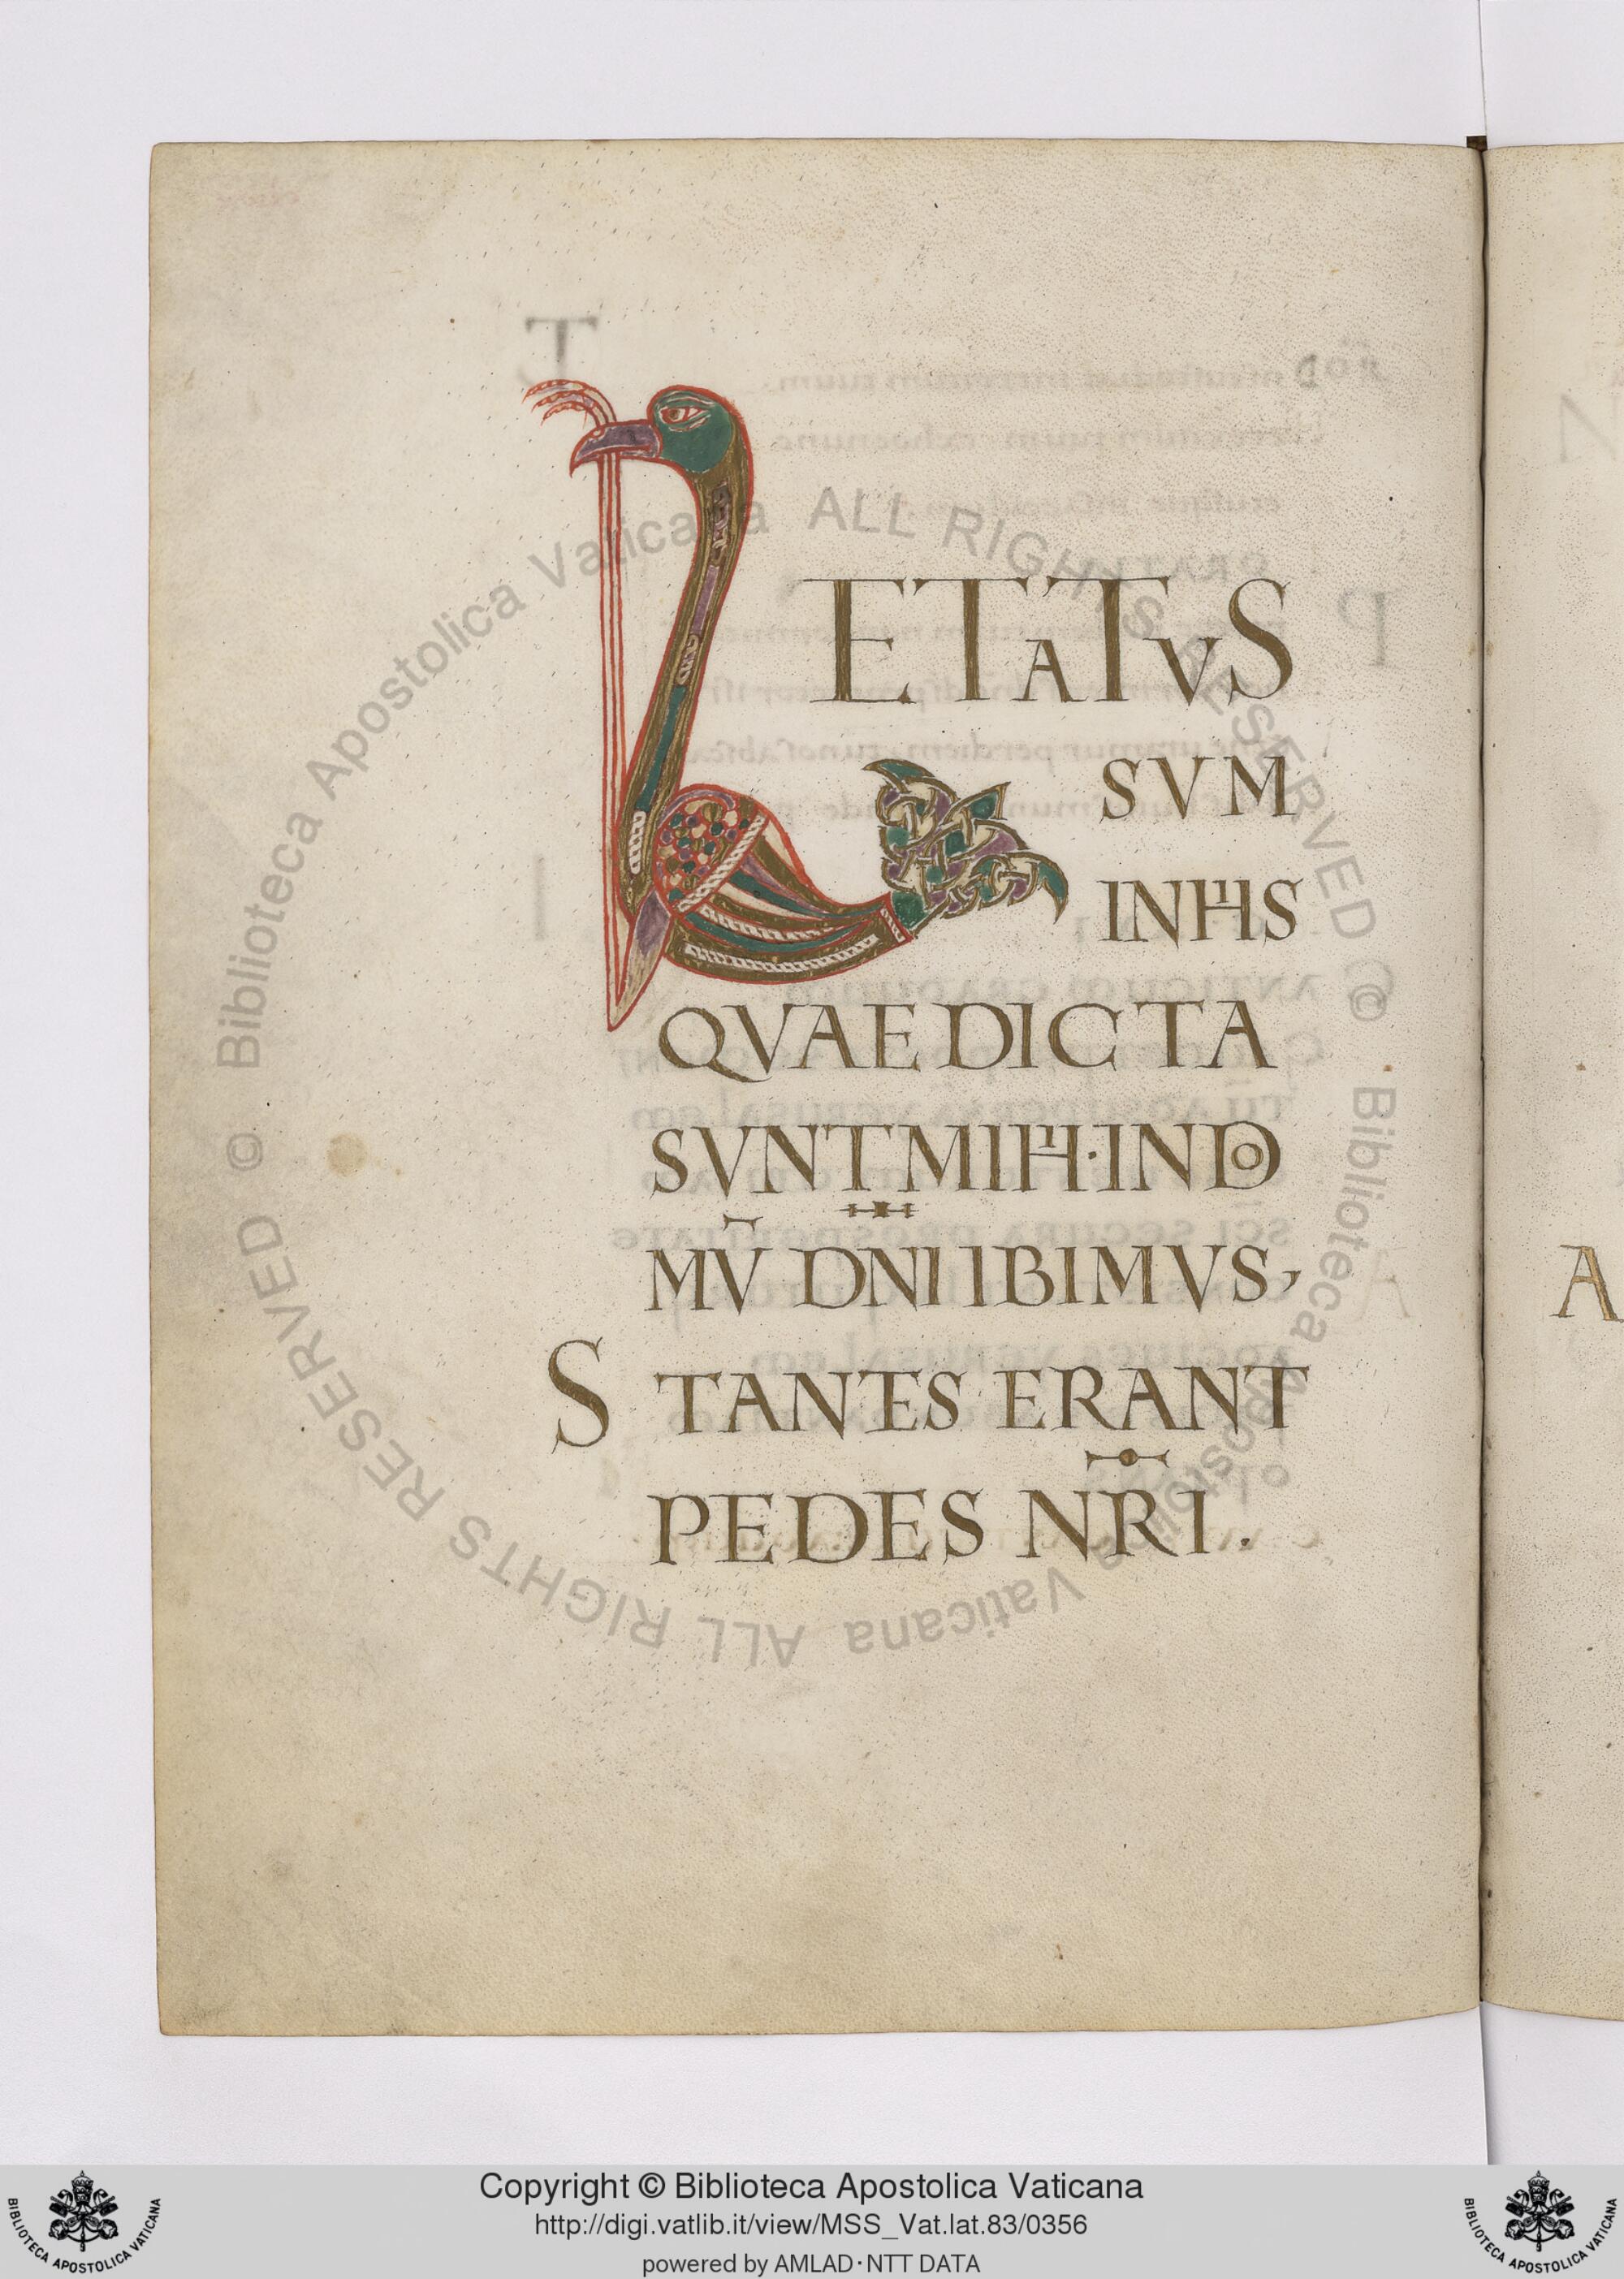 LETATVS
SVM
INHIS
QVAE DICTA
SVNT MIHI · IN DO
MŪ DN̄I IBIMVS,
STANTES ERANT
PEDES NR̄I.
A
Biblioteca Apostolica Vaticana ALL RIGHTS RESERVED ©
Biblioteca Apostolica Vaticana ALL RIGHTS RESERVED ©
Copyright © Biblioteca Apostolica Vaticana
http://digi.vatlib.it/view/MSS_Vat.lat.83/0356
powered by AMLAD·NTT DATA
BIBLIOTECA APOSTOLICA VATICANA
BIBLIOTECA APOSTOLICA VATICANA